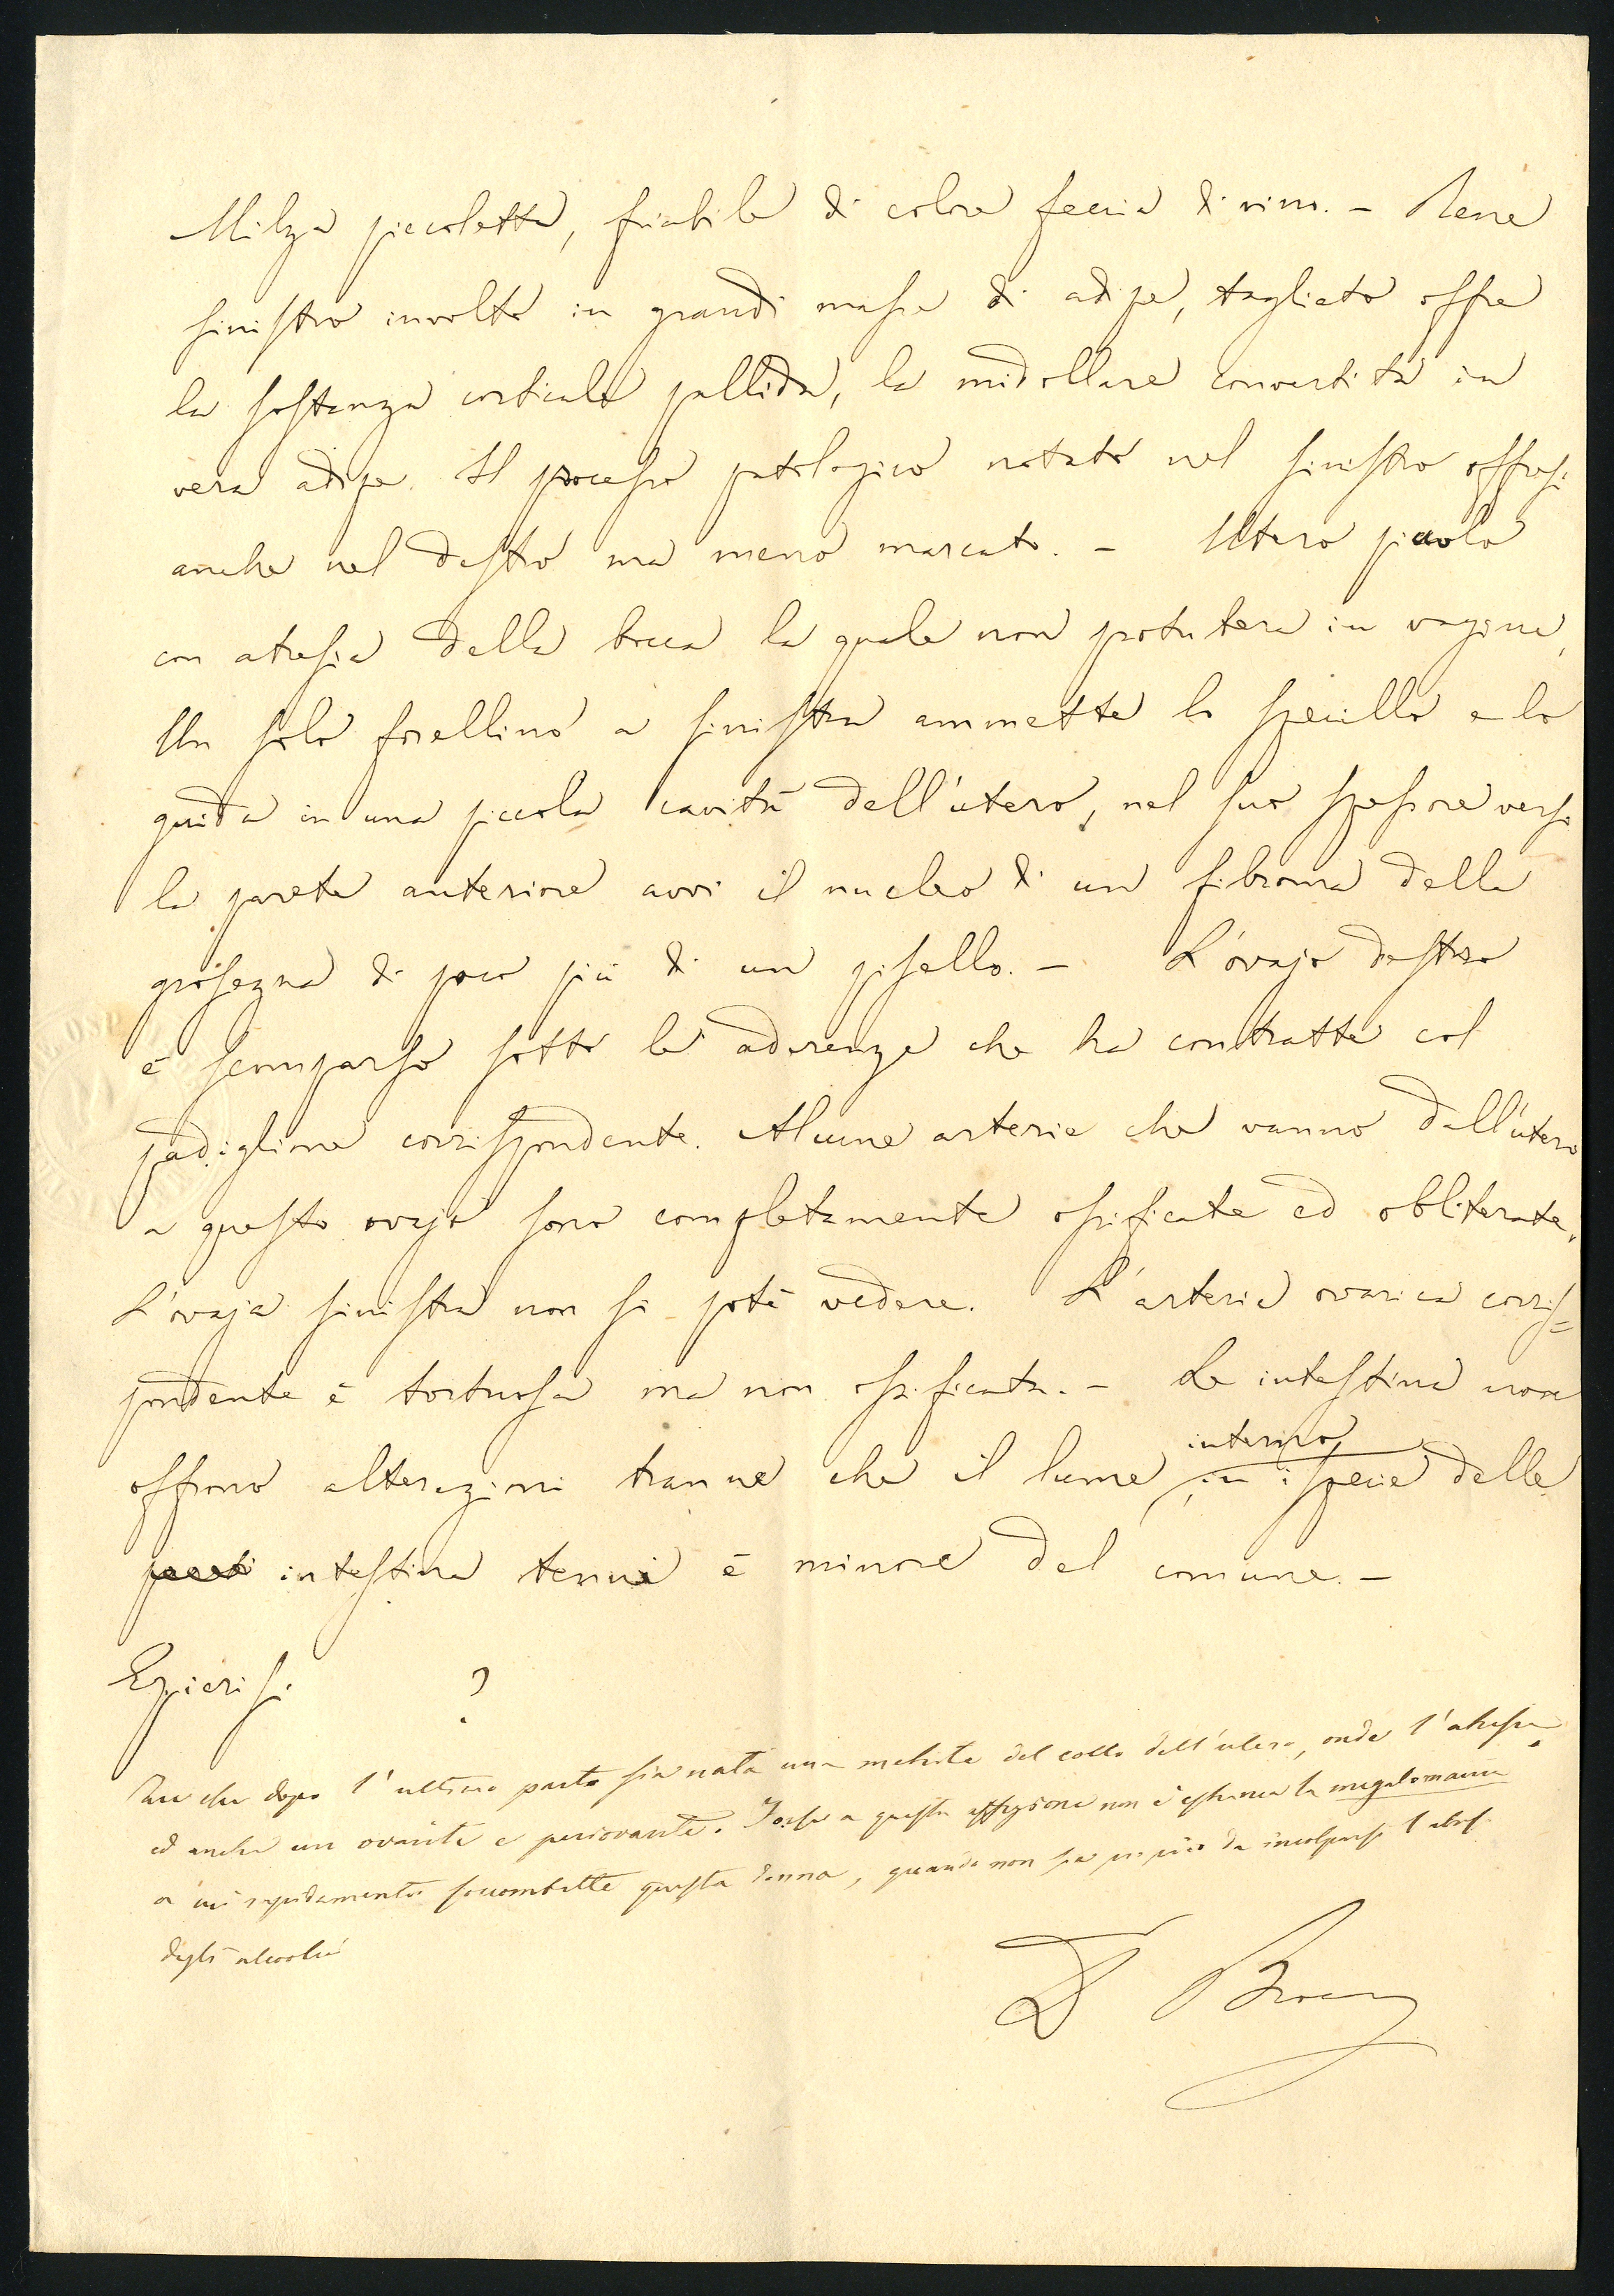 Milza piccoletta, friabile di colore feccia di vino. - Rene
sinistro involto in grandi masse di adipe, tagliato offre
la sostanza corticale pallida, la midollare convertita in
vera adipe. Il processo patologico notato nel sinistro offresi
anche nel destro ma meno marcato. - Utero piccolo
con atresia della bocca la quale non protubera in vagina,
Un solo forellino a sinistra ammette lo specillo e lo
guida in una piccola cavità dell'utero, nel suo spessore verso
la parete anteriore avvi il nucleo di un fibroma della
grossezza di poco più di un pisello. - L'ovajo destro
è scomparso sotto le aderenze che ha contratte col
padiglione corrispondente. Alcune arterie che vanno dall'utero
a questo ovajo sono completamente ossificate ed obliterate.
L'ovaja sinistra non si potè vedere. L'arteria ovarica corris=
pondente è tortuosa ma non ossificata. - Le intestina non
offrono alterazioni tranne che il lume interno, in ispecie delle
intestina tenui è minore del comune. -
Epicrisi. ?
che dopo l'ultimo parto sia nata una metrite del collo dell'utero, onde l'atresia
ed anche un ovarite e periovarite. Forse a questa affezione non è estranea la megalomania
a cui rapidamente soccombette questa donna, quando non sia da incolparsi l'abuso
degli alcoolici
Dr